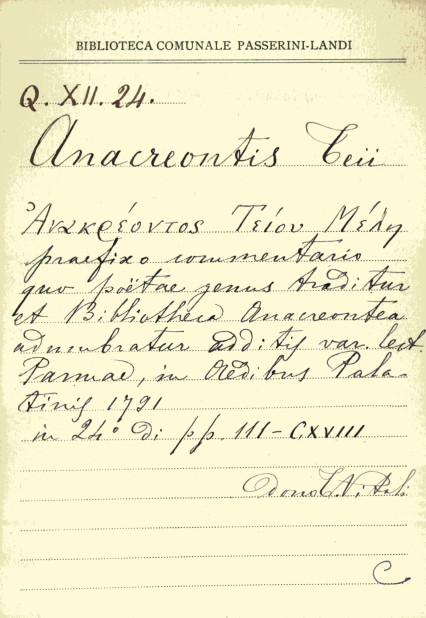 BIBLIOTECA COMUNALE PASSERINI-LANDI
Q. XII. 24.
Anacreontis Teii
Ἀνακρέοντος Τείου Μέλη
praefixo commentario
quo poëtae genus traditur
et Bibliotheca Anacreontea
adumbratur additis var. lect.
Parmae, in Aedibus Pala-
tinis 1791
in 24° di pp. 111-CXVIII
Dono
C